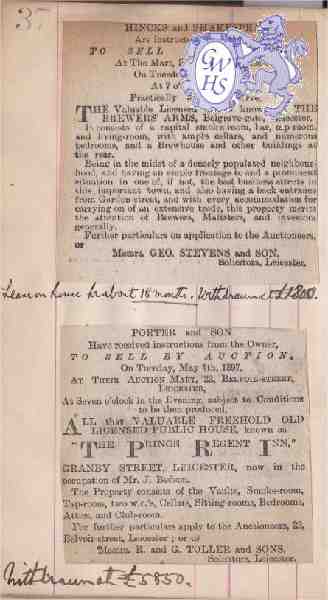 3
HINCKS and SHAKESPE
Are Instruct
TO SELL
At The Mart,
On Tuesd
At 7 o'
Practically
THE Valuable Licensed known THE
BREWERS ARMS, Belgrave-gate, Leicester.
It consists of a capital smoke-room, bar, tap-room
and living-room, with ample cellars, and numerous
bedrooms, and a Brewhouse and other buildings at
the rear.
Being in the midst of a densely populated neighbour-
hood, and having an ample frontage to and a prominent
situation in one of, if not, the best business streets in
this important town, and also having a back entrance
from Garden street, and with every accommodation for
carrying on of an extensive trade, this property merits
the attention of Brewers, Maltsters, and investors
generally.
Further particulars on application to the Auctioneers,
or
Messrs. GEO. STEVENS and SON,
Solicitors, Leicester.
Lease on house for about 18 months. Withdrawn at £1800.
PORTER and SON
Have received instructions from the Owner,
TO SELL BY AUCTION,
On Tuesday, May 4th, 1897,
AT THEIR AUCTION MART, 22, BELVOIR-STREET,
LEICESTER,
At Seven o'clock in the Evening, subject to Conditions
to be then produced,
ALL that VALUABLE FREEHOLD OLD
LICENSED PUBLIC HOUSE, known as
"THE PRINCE REGENT INN,"
GRANBY STREET, LEICESTER, now in the
occupation of Mr. J.
The Property consists of the Vaults, Smoke-room,
Tap-room, two w.c.'s, Cellars, Sitting-rooms, Bedrooms,
Attics, and Club-room.
For further particulars apply to the Auctioneers, 22,
Belvoir-street, Leicester; or to
Messrs. R. and G. TOLLER and SONS,
Solicitors, Leicester.
Withdrawn at £5850.
GWHS